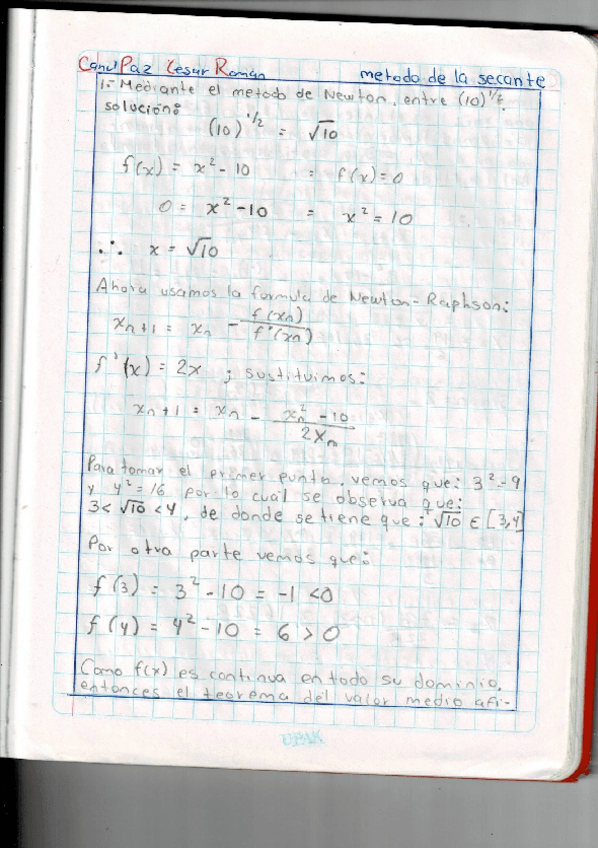 Canul Paz Cesar Román metodo de la secante
1:- Mediante el metodo de Newton, entre (10)^1/2.
solución:
(10)^1/2 = √10
f(x) = x² - 10 = f(x) = 0
0 = x² - 10 = x² = 10
∴ x = √10
Ahora usamos la formula de Newton-Raphson:
xn+1 = xn - f(xn)/f'(xn)
f'(x) = 2x ; sustituimos:
xn+1 = xn - (xn² - 10)/2xn
Para tomar el primer punto, vemos que: 3² = 9
y 4² = 16 por lo cual se observa que:
3 < √10 < 4, de donde se tiene que: √10 ∈ [3,4]
Por otra parte vemos que:
f(3) = 3² - 10 = -1 < 0
f(4) = 4² - 10 = 6 > 0
Como f(x) es continua en todo su dominio,
entonces el teorema del valor medio afi-